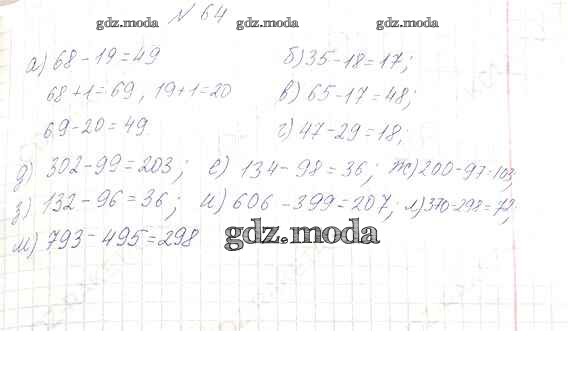 № 64
gdz.moda gdz.moda gdz.moda
а) 68 - 19 = 49 б) 35 - 18 = 17;
68 + 1 = 69, 19 + 1 = 20 в) 65 - 17 = 48;
69 - 20 = 49 г) 47 - 29 = 18;
д) 302 - 99 = 203; е) 134 - 98 = 36; ж) 200 - 97 = 103;
з) 132 - 96 = 36; и) 606 - 399 = 207; л) 370 - 298 = 72;
м) 793 - 495 = 298
gdz.moda